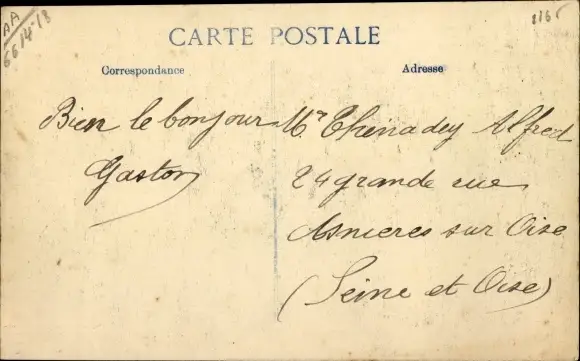 AA
6614-18
216
CARTE POSTALE
Correspondance
Adresse
Bien le bonjour
Gaston
Mr Thénadey Alfred
24 grande rue
Asnieres sur Oise
(Seine et Oise)